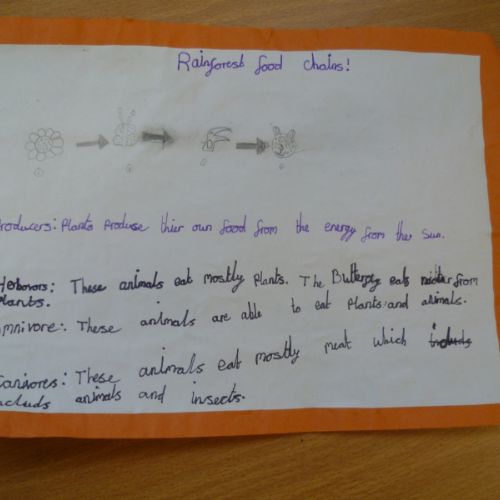 Rainforest food chains!
roducers: Plants Produse thier own food from the energy from the sun.
Herbovors: These animals eat mostly Plants. The Butterfly eats from
Plants.
mnivore: These animals are able to eat Plants and animals.
Canivores: These animals eat mostly meat which
includs animals and insects.